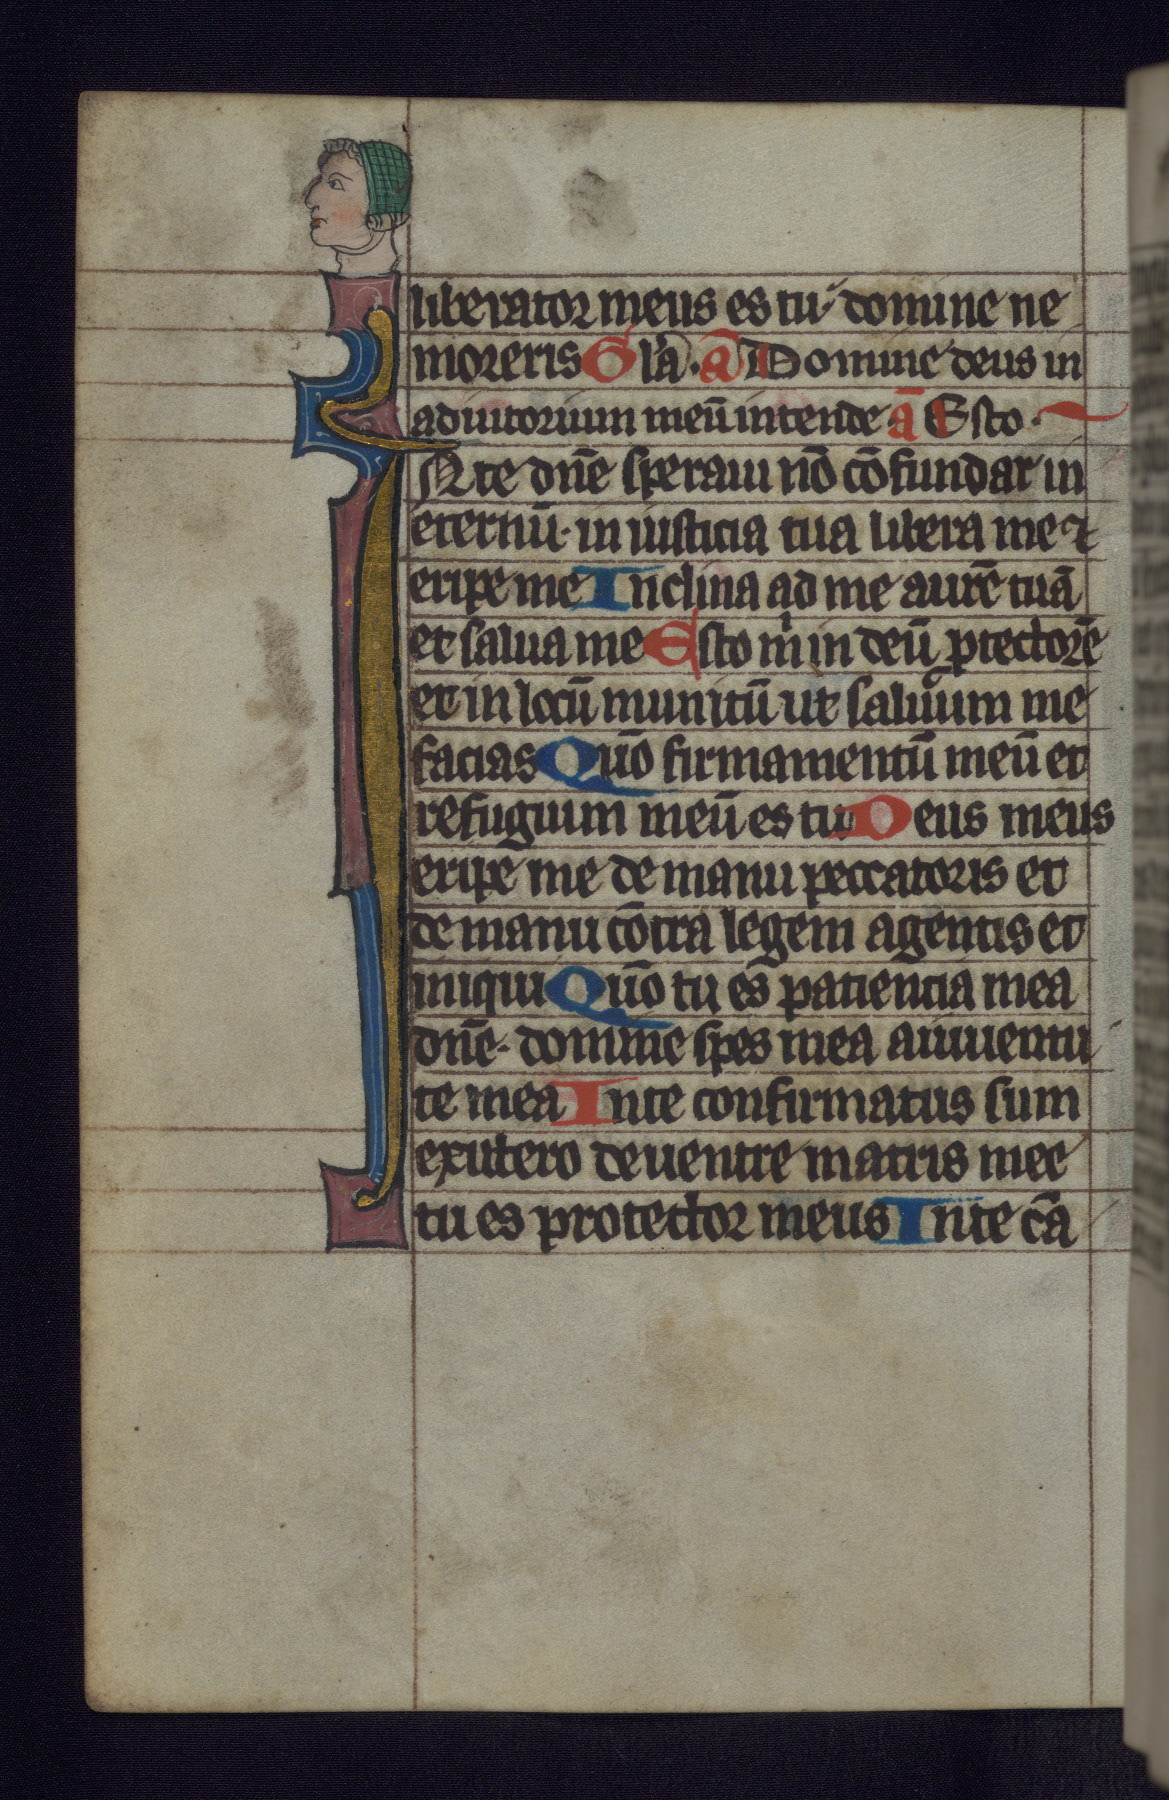 liberator meus es tu· domine ne
moreris Gl̄a· ā Domine deus in
adiutorium meū intende· ā Esto·
IN te dn̄e speraui nō cōfundar in
eternū· in iusticia tua libera me ⁊
eripe me Inclina ad me aurē tuā
et salua me Esto m̄ in deū ꝓtectorē
et in locū munitū ut saluum me
facias Quō firmamentū meū et
refugium meū es tu Deus meus
eripe me de manu peccatoris et
de manu cōtra legem agentis et
iniqui Quō tu es patiencia mea
dn̄e· domine spes mea a iuuentu
te mea In te confirmatus sum
ex utero de uentre matris mee
tu es protector meus In te cā